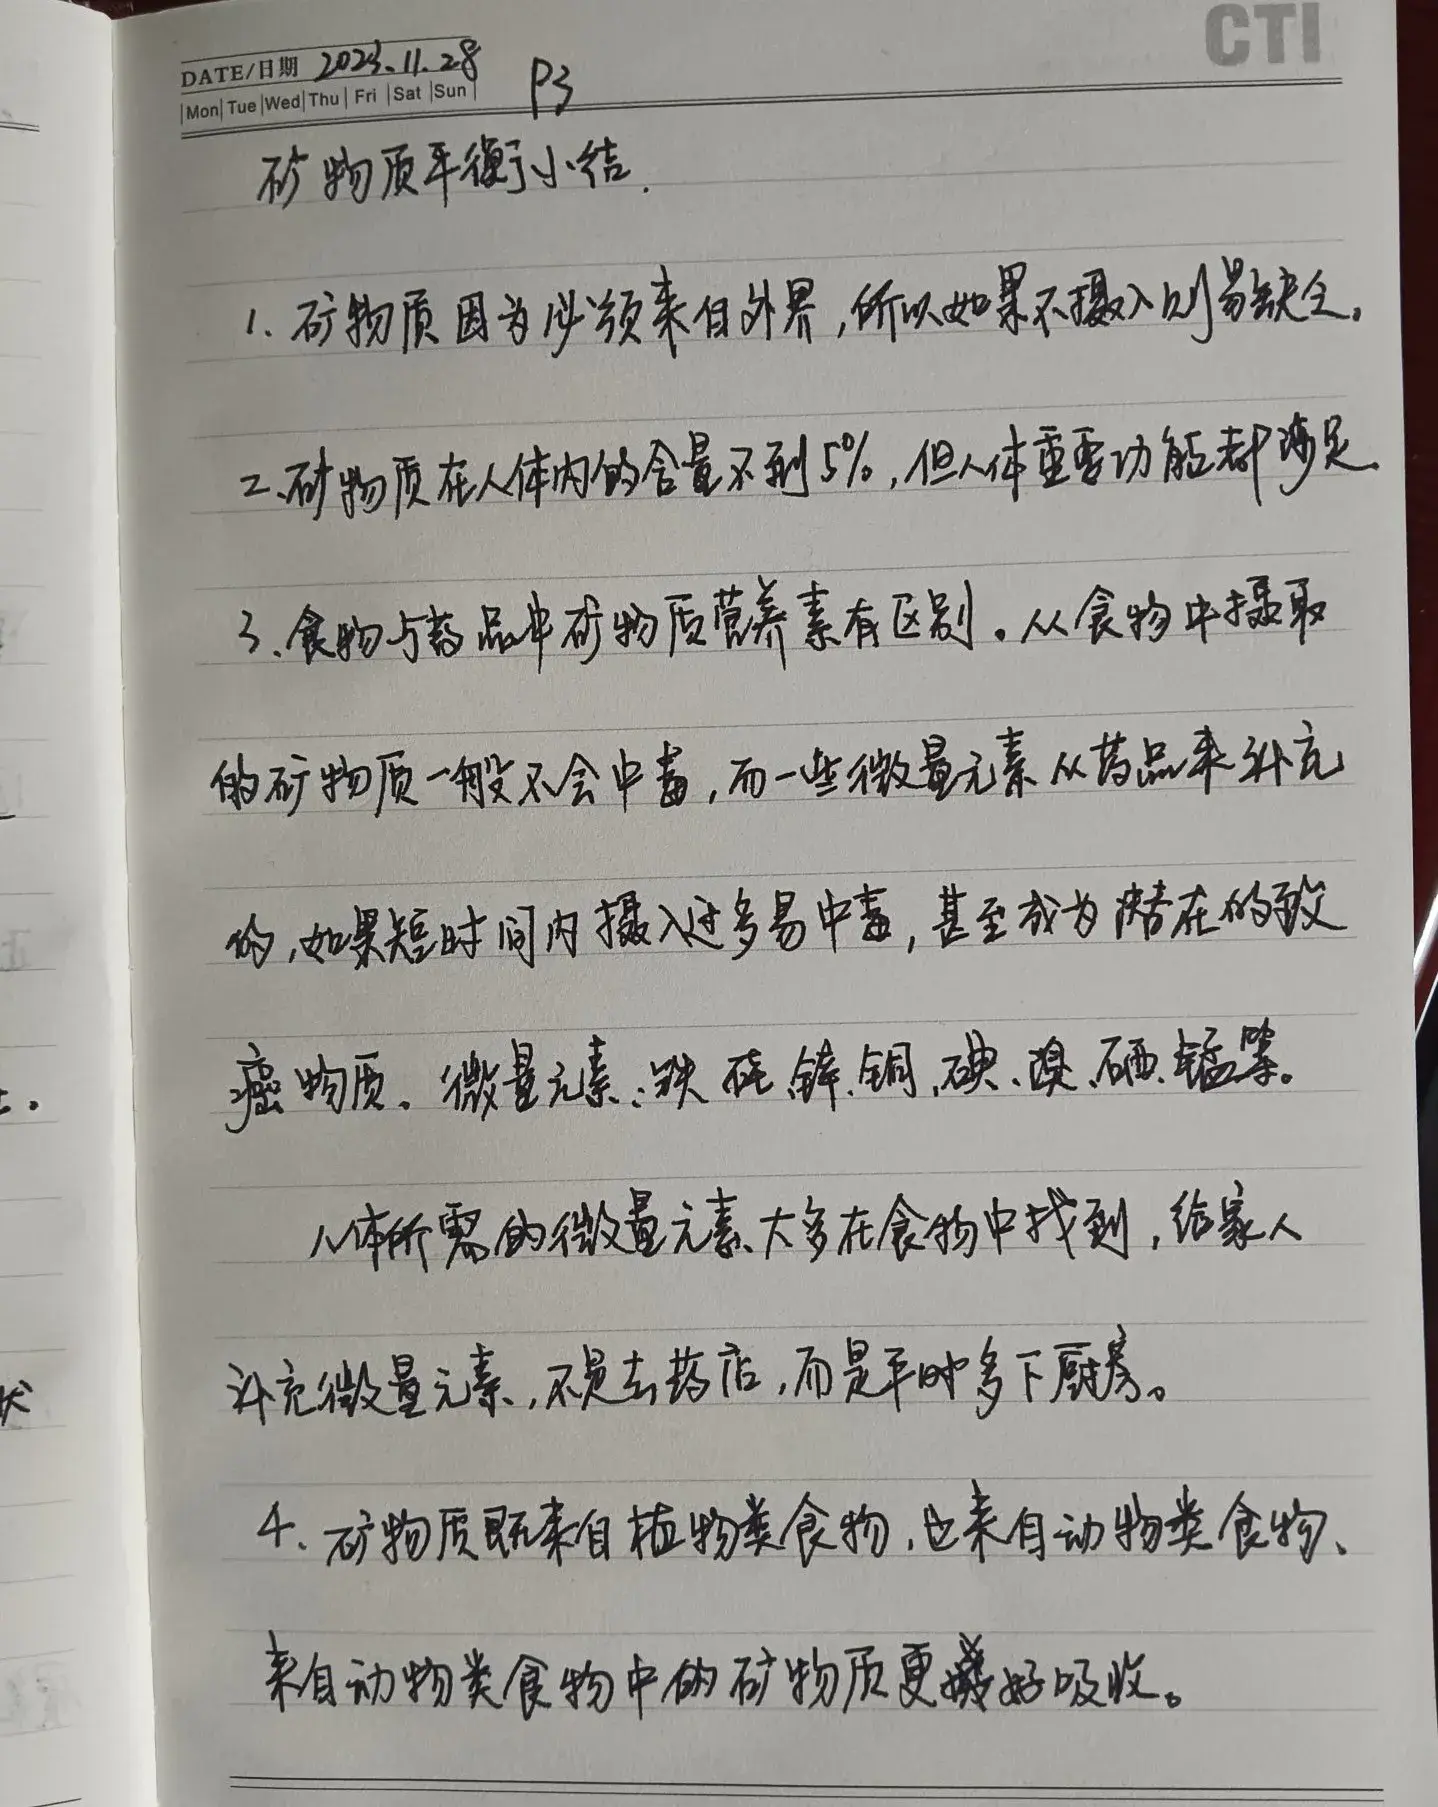 CTI
DATE/日期 2023.11.28 P3
Mon Tue Wed Thu Fri Sat Sun
矿物质平衡小结.
1. 矿物质因为必须来自外界,所以如果不摄入则易缺乏。
2、矿物质在人体内的含量不到5%,但人体重要功能都涉足.
3、食物与药品中矿物质营养素有区别。从食物中摄取
的矿物质一般不会中毒,而一些微量元素从药品来补充
的,如果短时间内摄入过多易中毒,甚至成为潜在的致
癌物质。微量元素:铁、锌、铜、碘、溴、硒、锰等。
人体所需的微量元素大多在食物中找到,给家人
补充微量元素,不是去药店,而是平时多下厨房。
4、矿物质既来自植物类食物,也来自动物类食物、
来自动物类食物中的矿物质更好吸收。